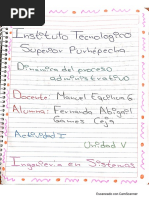 Instituto Tecnologico
Superior Purhépecha
Dinámica del proceso
administrativo
Docente: Manuel Equihua G
Alumna: Fernanda Abigail
Gamos Ceja
Actividad I
Unidad V
Ingenieria en Sistemas
Escaneado con CamScanner